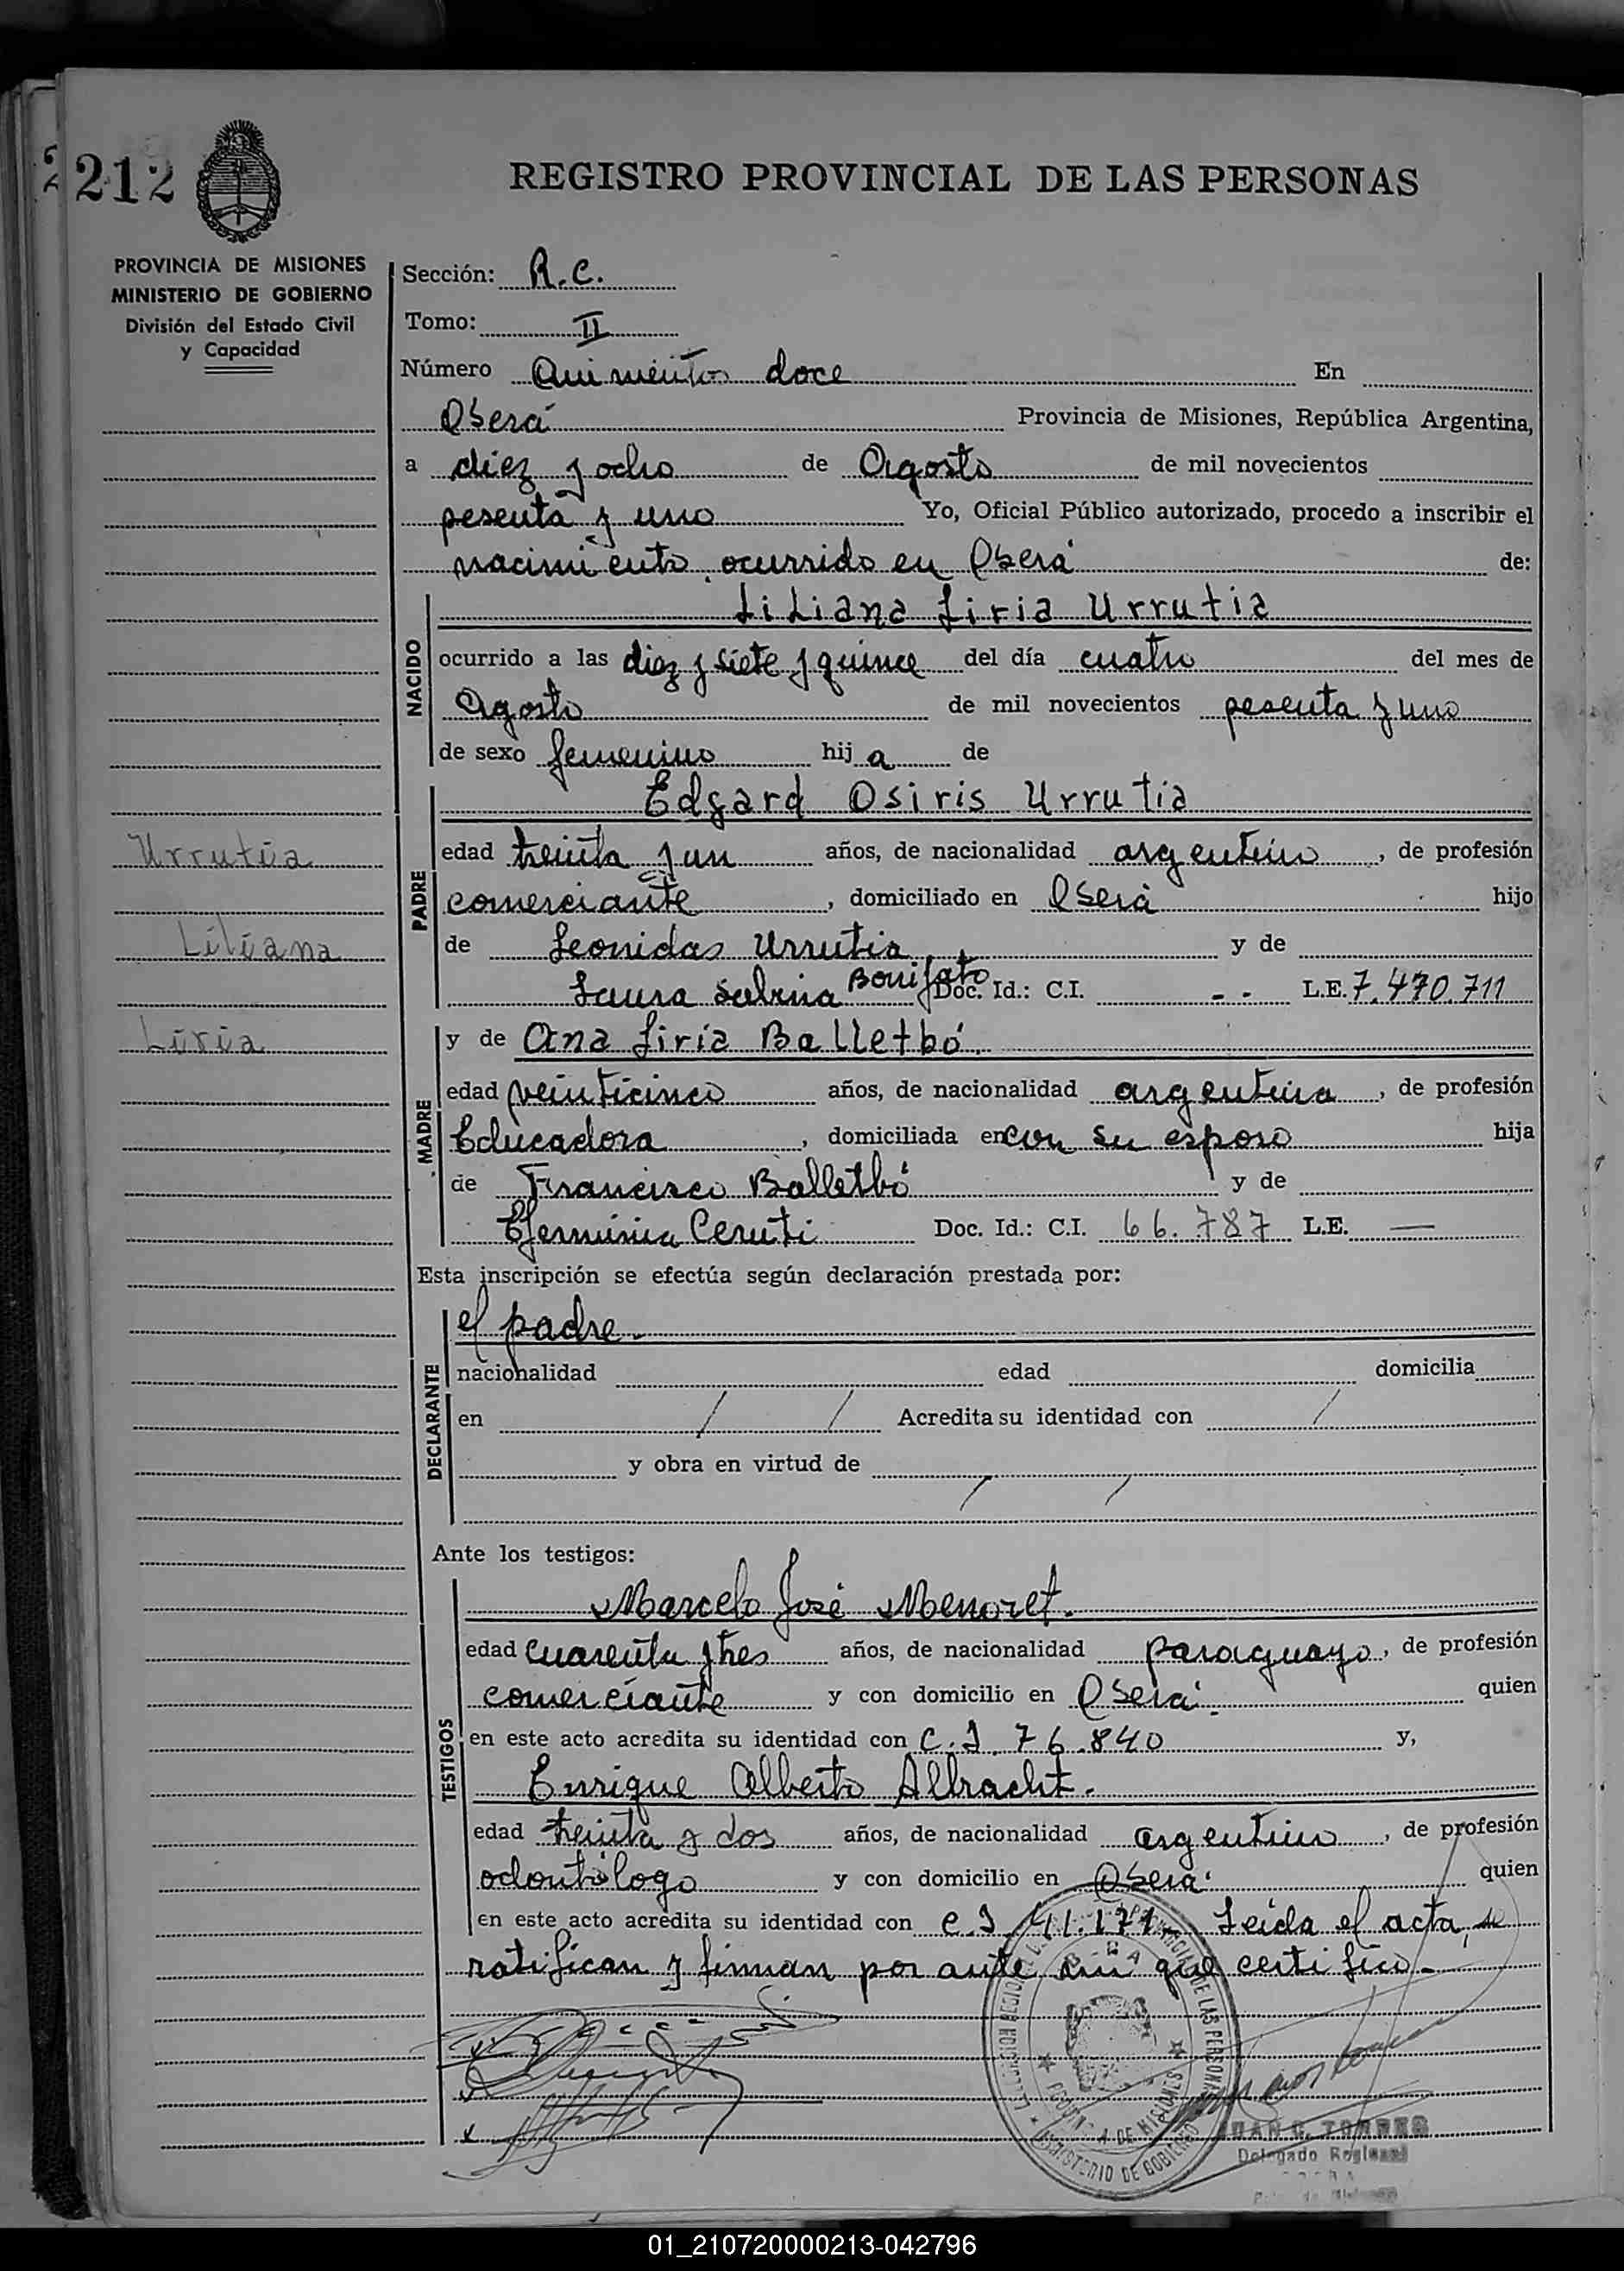 212
REGISTRO PROVINCIAL DE LAS PERSONAS
PROVINCIA DE MISIONES
MINISTERIO DE GOBIERNO
División del Estado Civil
y Capacidad
Sección: R.C.
Tomo: II
Número Quinientos doce En
Oberá Provincia de Misiones, República Argentina,
a diez y ocho de Agosto de mil novecientos
sesenta y uno Yo, Oficial Público autorizado, procedo a inscribir el
nacimiento ocurrido en Oberá de:
NACIDO
Liliana Liria Urrutia
ocurrido a las diez y siete y quince del día cuatro del mes de
Agosto de mil novecientos sesenta y uno
de sexo femenino hija de
PADRE
Edgard Osiris Urrutia
Urrutia
edad treinta y un años, de nacionalidad argentino, de profesión
comerciante, domiciliado en Oberá hijo
Liliana
de Leonidas Urrutia y de
Laura Sabina Bonifato Doc. Id.: C.I. - - L.E. 7.470.711
Liria
MADRE
y de Ana Liria Balletbó.
edad veinticinco años, de nacionalidad argentina, de profesión
Educadora, domiciliada en con su esposo hija
de Francisco Balletbó y de
Herminia Ceruti Doc. Id.: C.I. 66.787 L.E. —
Esta inscripción se efectúa según declaración prestada por:
DECLARANTE
el padre.
nacionalidad edad domicilia
en / / Acredita su identidad con /
y obra en virtud de
/ /
Ante los testigos:
TESTIGOS
Marcelo José Menoret.
edad cuarenta y tres años, de nacionalidad paraguayo, de profesión
comerciante y con domicilio en Oberá. quien
en este acto acredita su identidad con C.I. 76.840 y,
Enrique Alberto Albracht.
edad treinta y dos años, de nacionalidad argentino, de profesión
odontólogo y con domicilio en Oberá. quien
en este acto acredita su identidad con C.I. 41.171. Leída el acta, la
ratifican y firman por ante mí que certifico.-
PROVINCIA DE MISIONES
MINISTERIO DE GOBIERNO
JUAN C. TORRES
Delegado Regional
01_210720000213-042796